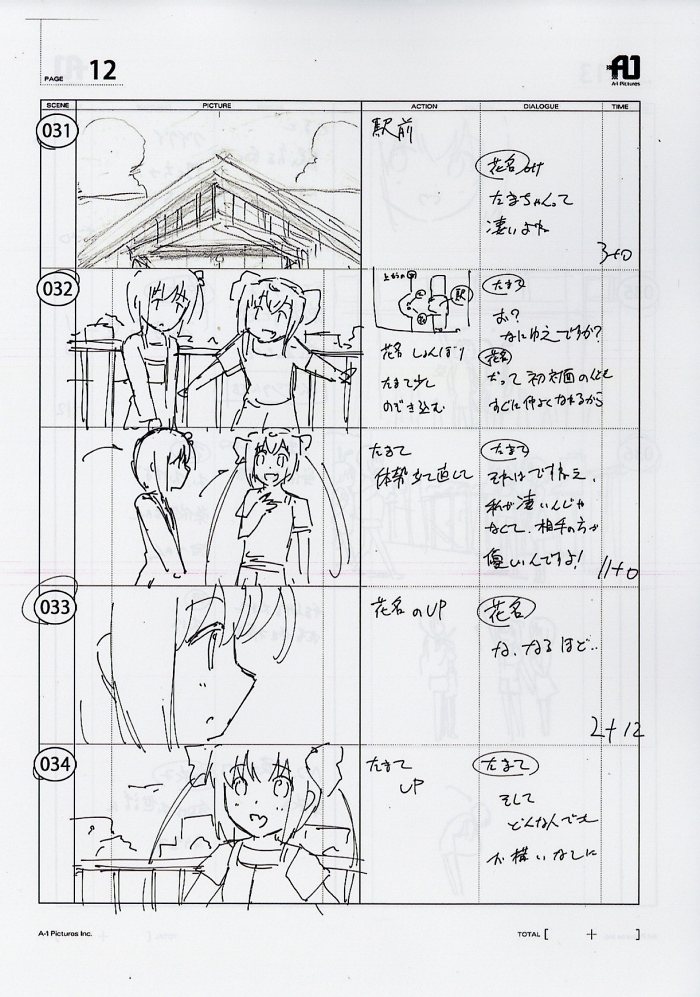 PAGE 12
A-1 Pictures
SCENE PICTURE ACTION DIALOGUE TIME
031
駅前
花名
たまちゃんって
凄いよね
3+0
032
駅
花名 しょんぼり
たまて少し
のぞき込む
たまて
お?
なにゆえですか?
花名
だって初対面の人とも
すぐに仲よくなれるから
たまて
体勢立て直して
たまて
それはですねえ、
私が凄いんじゃ
なくて、相手の方が
優しいんですよ!
11+0
033
花名のUP
花名
な、なるほど..
2+12
034
たまて
UP
たまて
そして
どんな人でも
お構いなしに
A-1 Pictures Inc.
TOTAL [ + ]